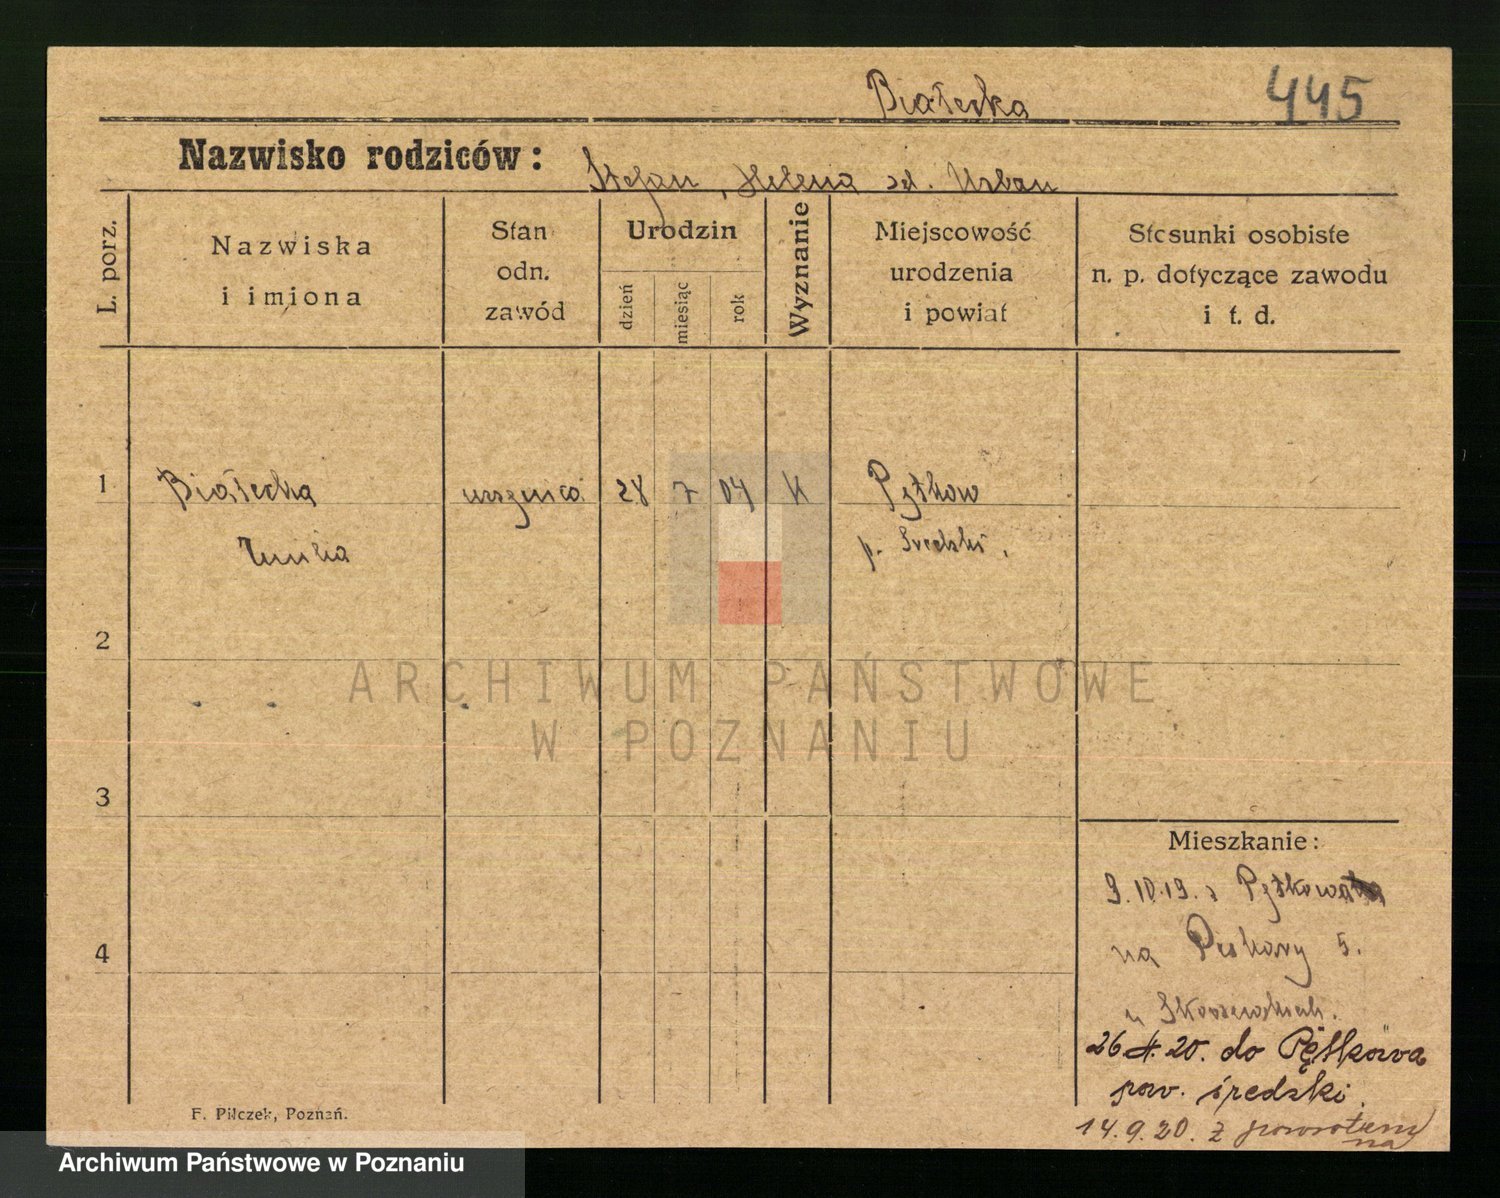 Białecka
445
Nazwisko rodziców:
Stefan, Helena zd. Urban
L. porz.
Nazwiska
i imiona
Stan
odn.
zawód
Urodzin
dzień
miesiąc
rok
Wyznanie
Miejscowość
urodzenia
i powiat
Stosunki osobiste
n. p. dotyczące zawodu
i t. d.
1
Białecka
uczenica
28
7
04
K
Pętkow
p. Średzki.
2
ARCHIWUM PAŃSTWOWE
W POZNANIU
3
Mieszkanie:
9.10.19. z
na Piekary 5.
4
u
26 4. 20. do Pętkowa
pow. średzki.
F. Pilczek, Poznań.
14.9.20. z powrotem
na
Archiwum Państwowe w Poznaniu